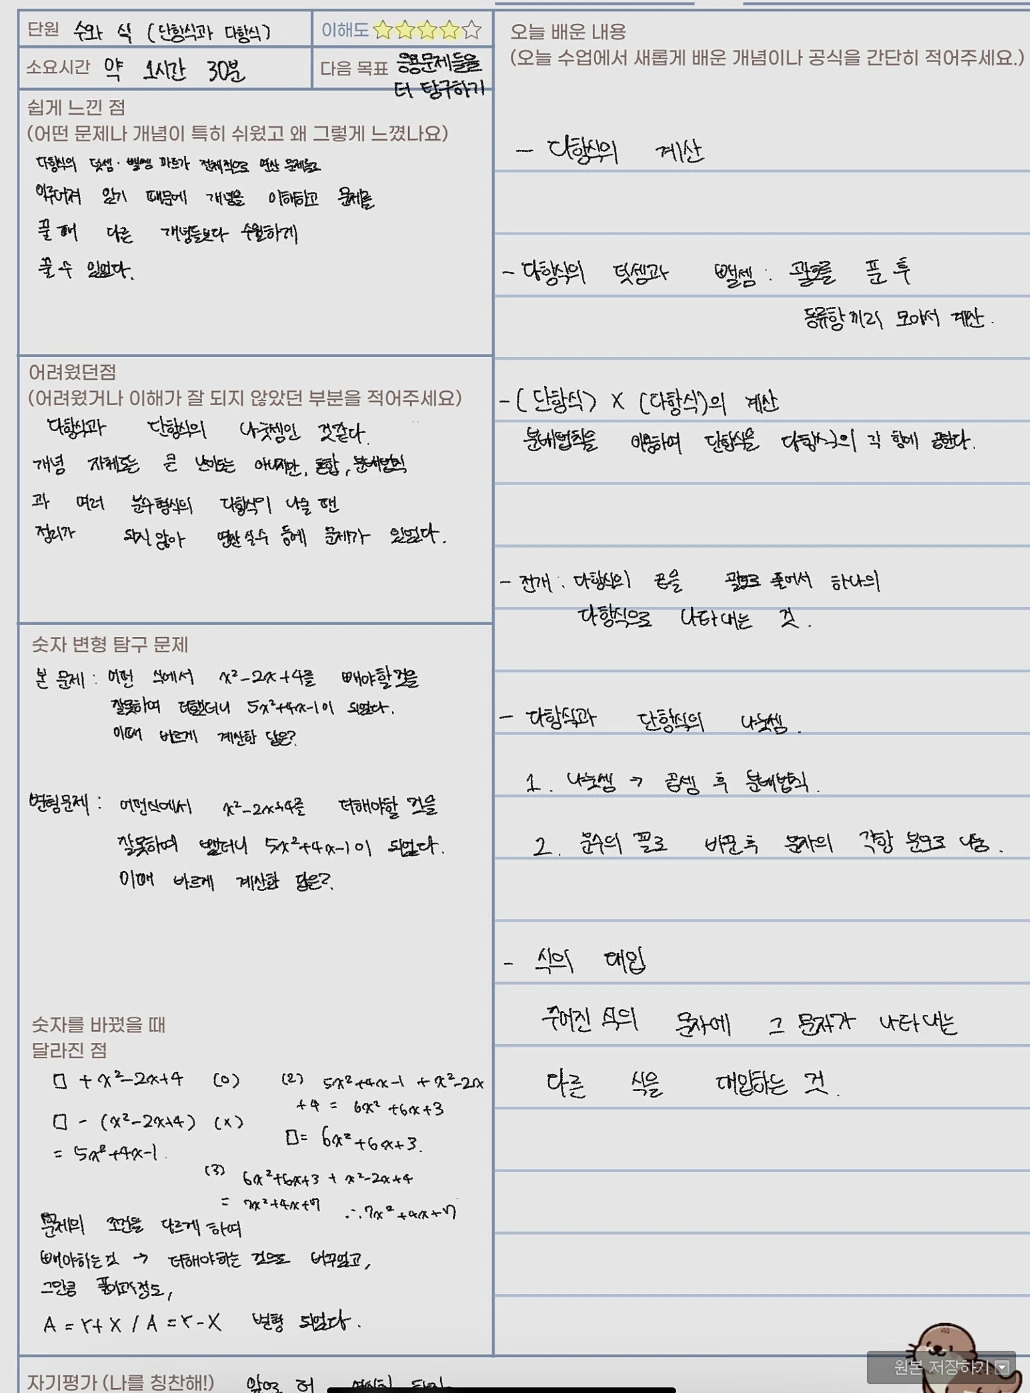 단원 수와 식 (단항식과 다항식)
이해도
소요시간 약 1시간 30분
다음 목표 응용문제들을
더 탐구하기
쉽게 느낀 점
(어떤 문제나 개념이 특히 쉬웠고 왜 그렇게 느꼈나요)
다항식의 덧셈·뺄셈 파트가 전체적으로 연산 문제들로
이루어져 있기 때문에 개념을 이해하고 문제를
풀 때 다른 개념들보다 수월하게
풀 수 있었다.
어려웠던점
(어려웠거나 이해가 잘 되지 않았던 부분을 적어주세요)
다항식과 단항식의 나눗셈인 것같다.
개념 자체로는 큰 난이도는 아니지만, 혼합, 분배법칙
과 여러 분수형식의 다항식이 나올 땐
정리가 되지 않아 연산 실수 등에 문제가 있었다.
숫자 변형 탐구 문제
본 문제 : 어떤 식에서 x²-2x+4를 빼야할것을
잘못하여 더했더니 5x²+4x-1이 되었다.
이때 바르게 계산한 답은?
변형문제 : 어떤식에서 x²-2x+4를 더해야할 것을
잘못하여 뺐더니 5x²+4x-1이 되었다.
이때 바르게 계산한 답은?
숫자를 바꿨을 때
달라진 점
□ + x²-2x+4 (o)
□ - (x²-2x+4) (x)
= 5x²+4x-1.
(2) 5x²+4x-1 + x²-2x
+4 = 6x² +6x+3
□= 6x²+6x+3.
(3) 6x²+6x+3 + x²-2x+4
= 7x²+4x+7 ∴7x²+4x+7
문제의 조건을 다르게 하여
빼야하는것 → 더해야하는 것으로 바꾸었고,
그만큼 풀이과정도,
A = Y+X / A = Y-X 변형 되었다.
자기평가 (나를 칭찬해!)
오늘 배운 내용
(오늘 수업에서 새롭게 배운 개념이나 공식을 간단히 적어주세요.)
- 다항식의 계산
- 다항식의 덧셈과 뺄셈 : 괄호를 푼 후
동류항끼리 모아서 계산.
- (단항식) X (다항식)의 계산
분배법칙을 이용하여 단항식을 다항식의 각 항에 곱한다.
- 전개 : 다항식의 곱을 괄호로 풀어서 하나의
다항식으로 나타내는 것.
- 다항식과 단항식의 나눗셈.
1. 나눗셈 → 곱셈 후 분배법칙.
2. 분수의 꼴로 바꾼 후 분자의 각항 분모로 나눔.
- 식의 대입
주어진 식의 문자에 그 문자가 나타내는
다른 식을 대입하는 것.
원본 저장하기